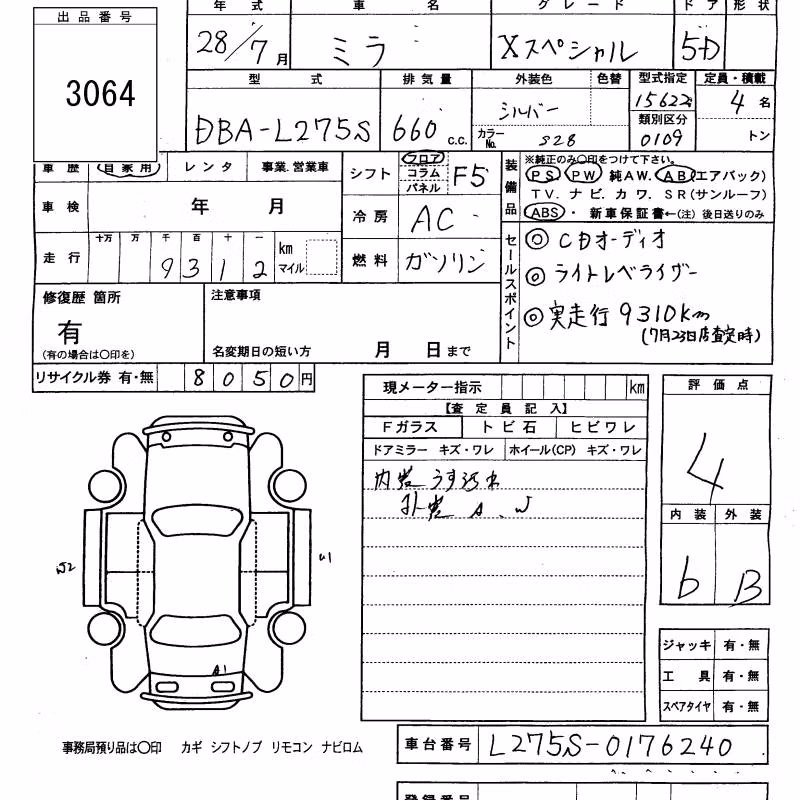 出品番号
3064
年式 車名 グレード ドア 形状
28/7月 ミラ Xスペシャル 5D
型式 排気量 外装色 色替 型式指定 定員・積載
DBA-L275S 660 c.c. シルバー 15622 4名
カラーNo. S28 類別区分 0109 トン
車歴 自家用 レンタ 事業.営業車
シフト フロア コラム パネル F5
車検 年 月
冷房 AC
走行 十万 万 千 百 十 一
9312 km マイル
燃料 ガソリン
装備品
※純正のみ〇印をつけて下さい。
PS PW 純AW. AB(エアバック)
TV. ナビ. カワ. SR(サンルーフ)
ABS・ 新車保証書←(注) 後日送りのみ
セールスポイント
◎ CDオーディオ
◎ ライトレベライザー
◎ 実走行 9310km
(7月23日店査定時)
修復歴 箇所
有
(有の場合は〇印を)
注意事項
名変期日の短い方 月 日まで
リサイクル券 有・無 8050円
現メーター指示 km
【査定員記入】
Fガラス トビ石 ヒビワレ
ドアミラー キズ・ワレ ホイール(CP) キズ・ワレ
内装うす汚れ
外装 A.W
評価点
4
内装 外装
b B
W2
U1
A1
ジャッキ 有・無
工具 有・無
スペアタイヤ 有・無
事務局預り品は〇印 カギ シフトノブ リモコン ナビロム
車台番号 L275S-0176240
登録番号